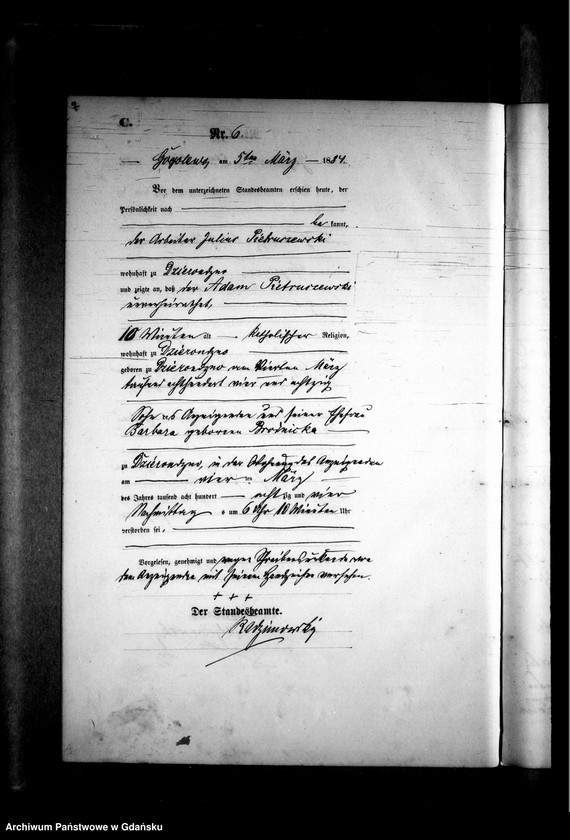 C.
Nr. 6.
Gogolewo am 5ten März 1884.
Vor dem unterzeichneten Standesbeamten erschien heute, der
Persönlichkeit nach
be kannt,
der Arbeiter Julius Pietruszewski
wohnhaft zu Dzierondzno
und zeigte an, daß der Adam Pietruszewski
unverheirathet,
10 Minuten alt katholischer Religion,
wohnhaft zu Dzierondzno
geboren zu Dzierondzno am vierten März
tausend achthundert vier und achtzig
Sohn des Anzeigenden und seiner Ehefrau
Barbara geborenen Brodnicka
zu Dzierondzno, in der Wohnung des Anzeigenden
am vier ten März
des Jahres tausend acht hundert acht zig und vier
Nachmittag s um 6 Uhr 10 Minuten Uhr
verstorben sei,
Vorgelesen, genehmigt und wegen Schreibensunkunde von
dem Anzeigenden mit seinem Handzeichen versehen.
+ + +
Der Standesbeamte.
Radzimowski
Archiwum Państwowe w Gdańsku